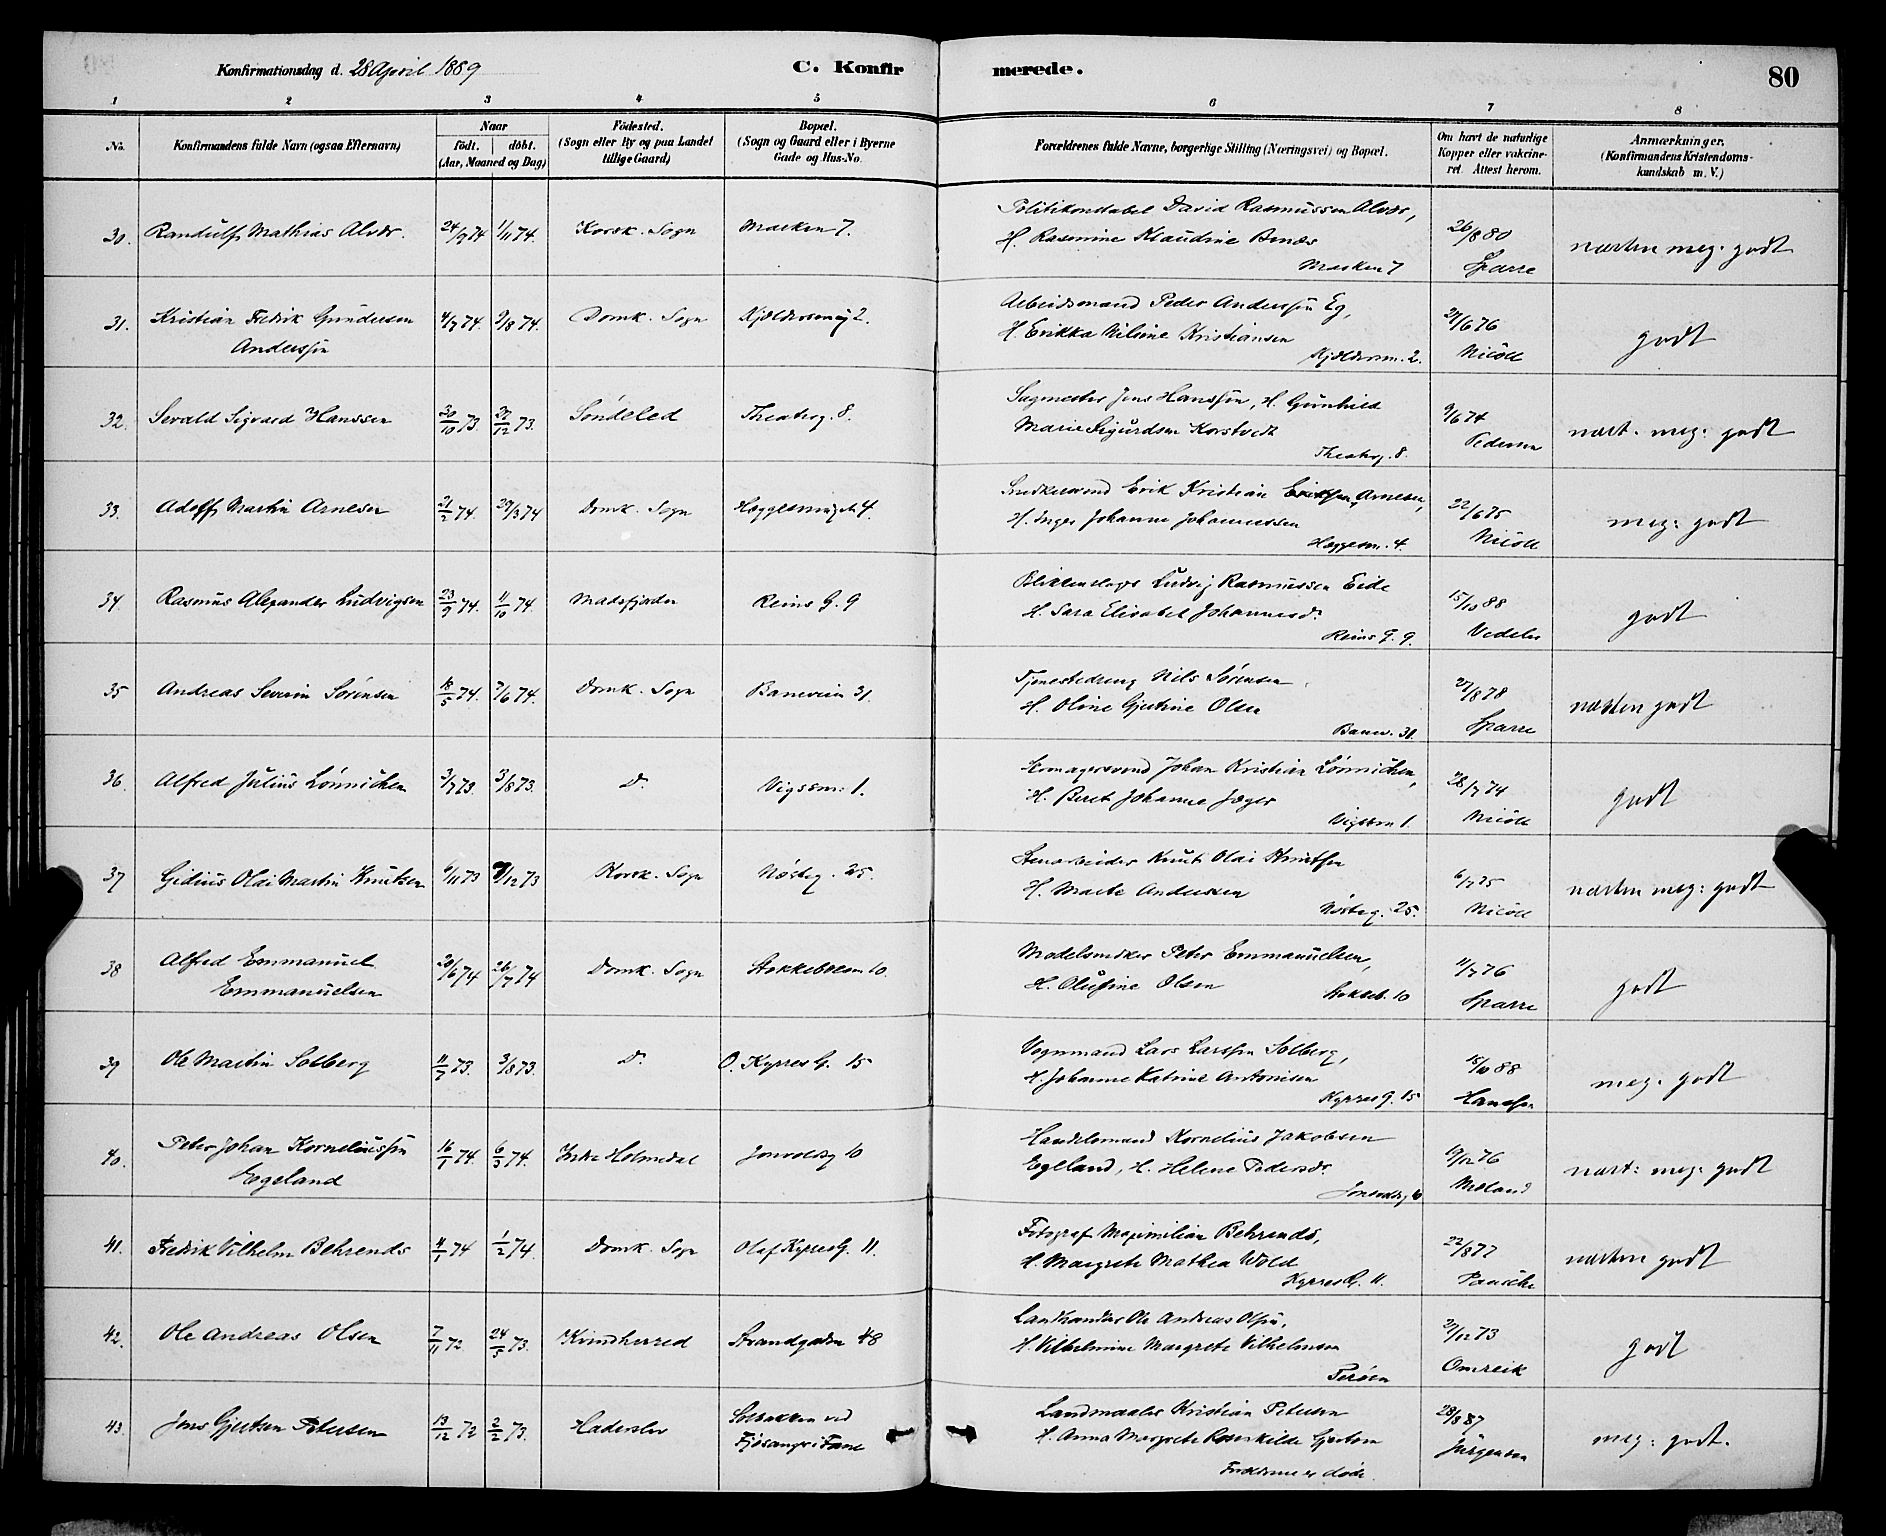 Konfirmationsdag d. 28 April 1889
C. Konfirmerede.
80
1 2 3 4 5 6 7 8
No.
Konfirmandens fulde Navn (ogsaa Efternavn)
Naar
födt. döbt.
(Aar, Maaned og Dag)
Födested.
(Sogn eller By og paa Landet
tillige Gaard)
Bopæl.
(Sogn og Gaard eller i Byerne
Gade og Hus-No.
Forældrenes fulde Navne, borgerlige Stilling (Næringsvei) og Bopæl.
Om havt de naturlige
Kopper eller vakcine-
ret. Attest herom.
Anmærkninger.
(Konfirmandens Kristendoms-
kundskab m. V.)
30. Randulf Mathias Alver. 24/9 74 1/11 74. Korsk. Sogn Marken 7.
Politikonstabel David Rasmussen Alver,
H. Rasmine Klaudine
Marken 7
26/8 80
Sparre
næsten meg. godt
31. Kristian Fredrik Gundersen
Anderssön
4/7 74. 9/8 74. Domk. Sogn 2.
Arbeidsmand Peder Anderssön Eg,
H. Erikka Nilsine Kristiansen
2.
27/6 76
Nicoll
godt
32. Sevald Sigvard Hanssen 30/10 73. 27/12 73. Söndeled Theaterg. 8.
Sagmester Jens Hanssön, H. Gunhild
Marie Sigurdsen Korstvedt
Theaterg. 8.
9/6 74
Pedersen
næst. meg: godt
33. Adolf Martin Arnesen 21/2 74. 29/3 74 Domk. Sogn 4.
Snedkersvend Erik Kristian Eriksen Arnesen,
H. Inger Johanne Johannessen
4.
22/6 75
Nicoll
meg: godt
34. Rasmus Alexander Ludvigsen 23/9 74. 11/10 74. Madsfjorden Reins G. 9
Blikkenslager Ludvig Rasmussen Eide
H. Sara Elisabet Johannesd.
Reins G. 9.
15/10 88
Vedeler
godt
35 Andreas Severin Sörensen 18/5 74. 7/6 74. Domk. Sogn Baneveien 31.
Tjenestedreng Nils Sörensen
H. Oline Gjertine Olsen
Banev. 31.
27/8 78
Sparre
næsten godt
36. Alfred Julius Lönnichen 3/7 73. 3/8 73. D. Vigssm: 1.
Skomagersvend Johan Kristian Lönnichen,
H. Beret Johanne Jæger
1.
28/7 74
Nicoll
godt
37 Gidius Olai Martin Knutsen 6/11 73 7/12 73 Korsk. Sogn Nösteg. 25.
Stenarbeider Knut Olai Knutsen
H. Marte Andersen
Nösteg. 25.
6/7 75
Nicoll
næsten meg: godt
38 Alfred Emmanuel
Emmanuelsen
20/6 74 26/7 74 Domk. Sogn 10.
Modelsnedker Peter Emmanuelsen,
H. Olufine Olsen
10
11/7 76
Sparre
godt
39 Ole Martin Solberg 11/7 73. 3/8 73. D. O. Kyrres G. 15
Vognmand Lars Larsen Solberg,
H. Johanne Katrine Antonisen
Kyrres G. 15
15/10 88
Hansen
meg. godt
40. Peter Johan Korneliussön
Egeland
16/1 74. 6/3 74. Indre Holmedal 10
Handelsmand Kornelius Jakobsen
Egeland, H. Helene Pedersd.
10
19/12 76
Meland
næst: meg: godt
41. Fredrik Vilhelm Behrends 11/1 74 1/2 74. Domk. Sogn Olaf Kyrres G. 11.
Fotograf Maximilian Behrends,
H. Margrete Mathea Wold
Kyrres G. 11.
22/8 77
næsten godt
42. Ole Andreas Olsen 7/11 72. 24/5 73. Kvindherred Strandgaden 48
Landhandler Ole Andreas Olsen,
H. Vilhelmine Margrete Vilhelmsen
Teröen
21/12 73
Omreik
godt
43 Jens Gjertsen Petersen 13/12 72 2/2 73. Haderslev Solbakken ved
Fjösanger i Fane
Landmaaler Kristian Petersen
H. Anna Margrete Roeskilde Gjertsen
Forældrene er döde.
28/3 87
Jürgensen
meg: godt.